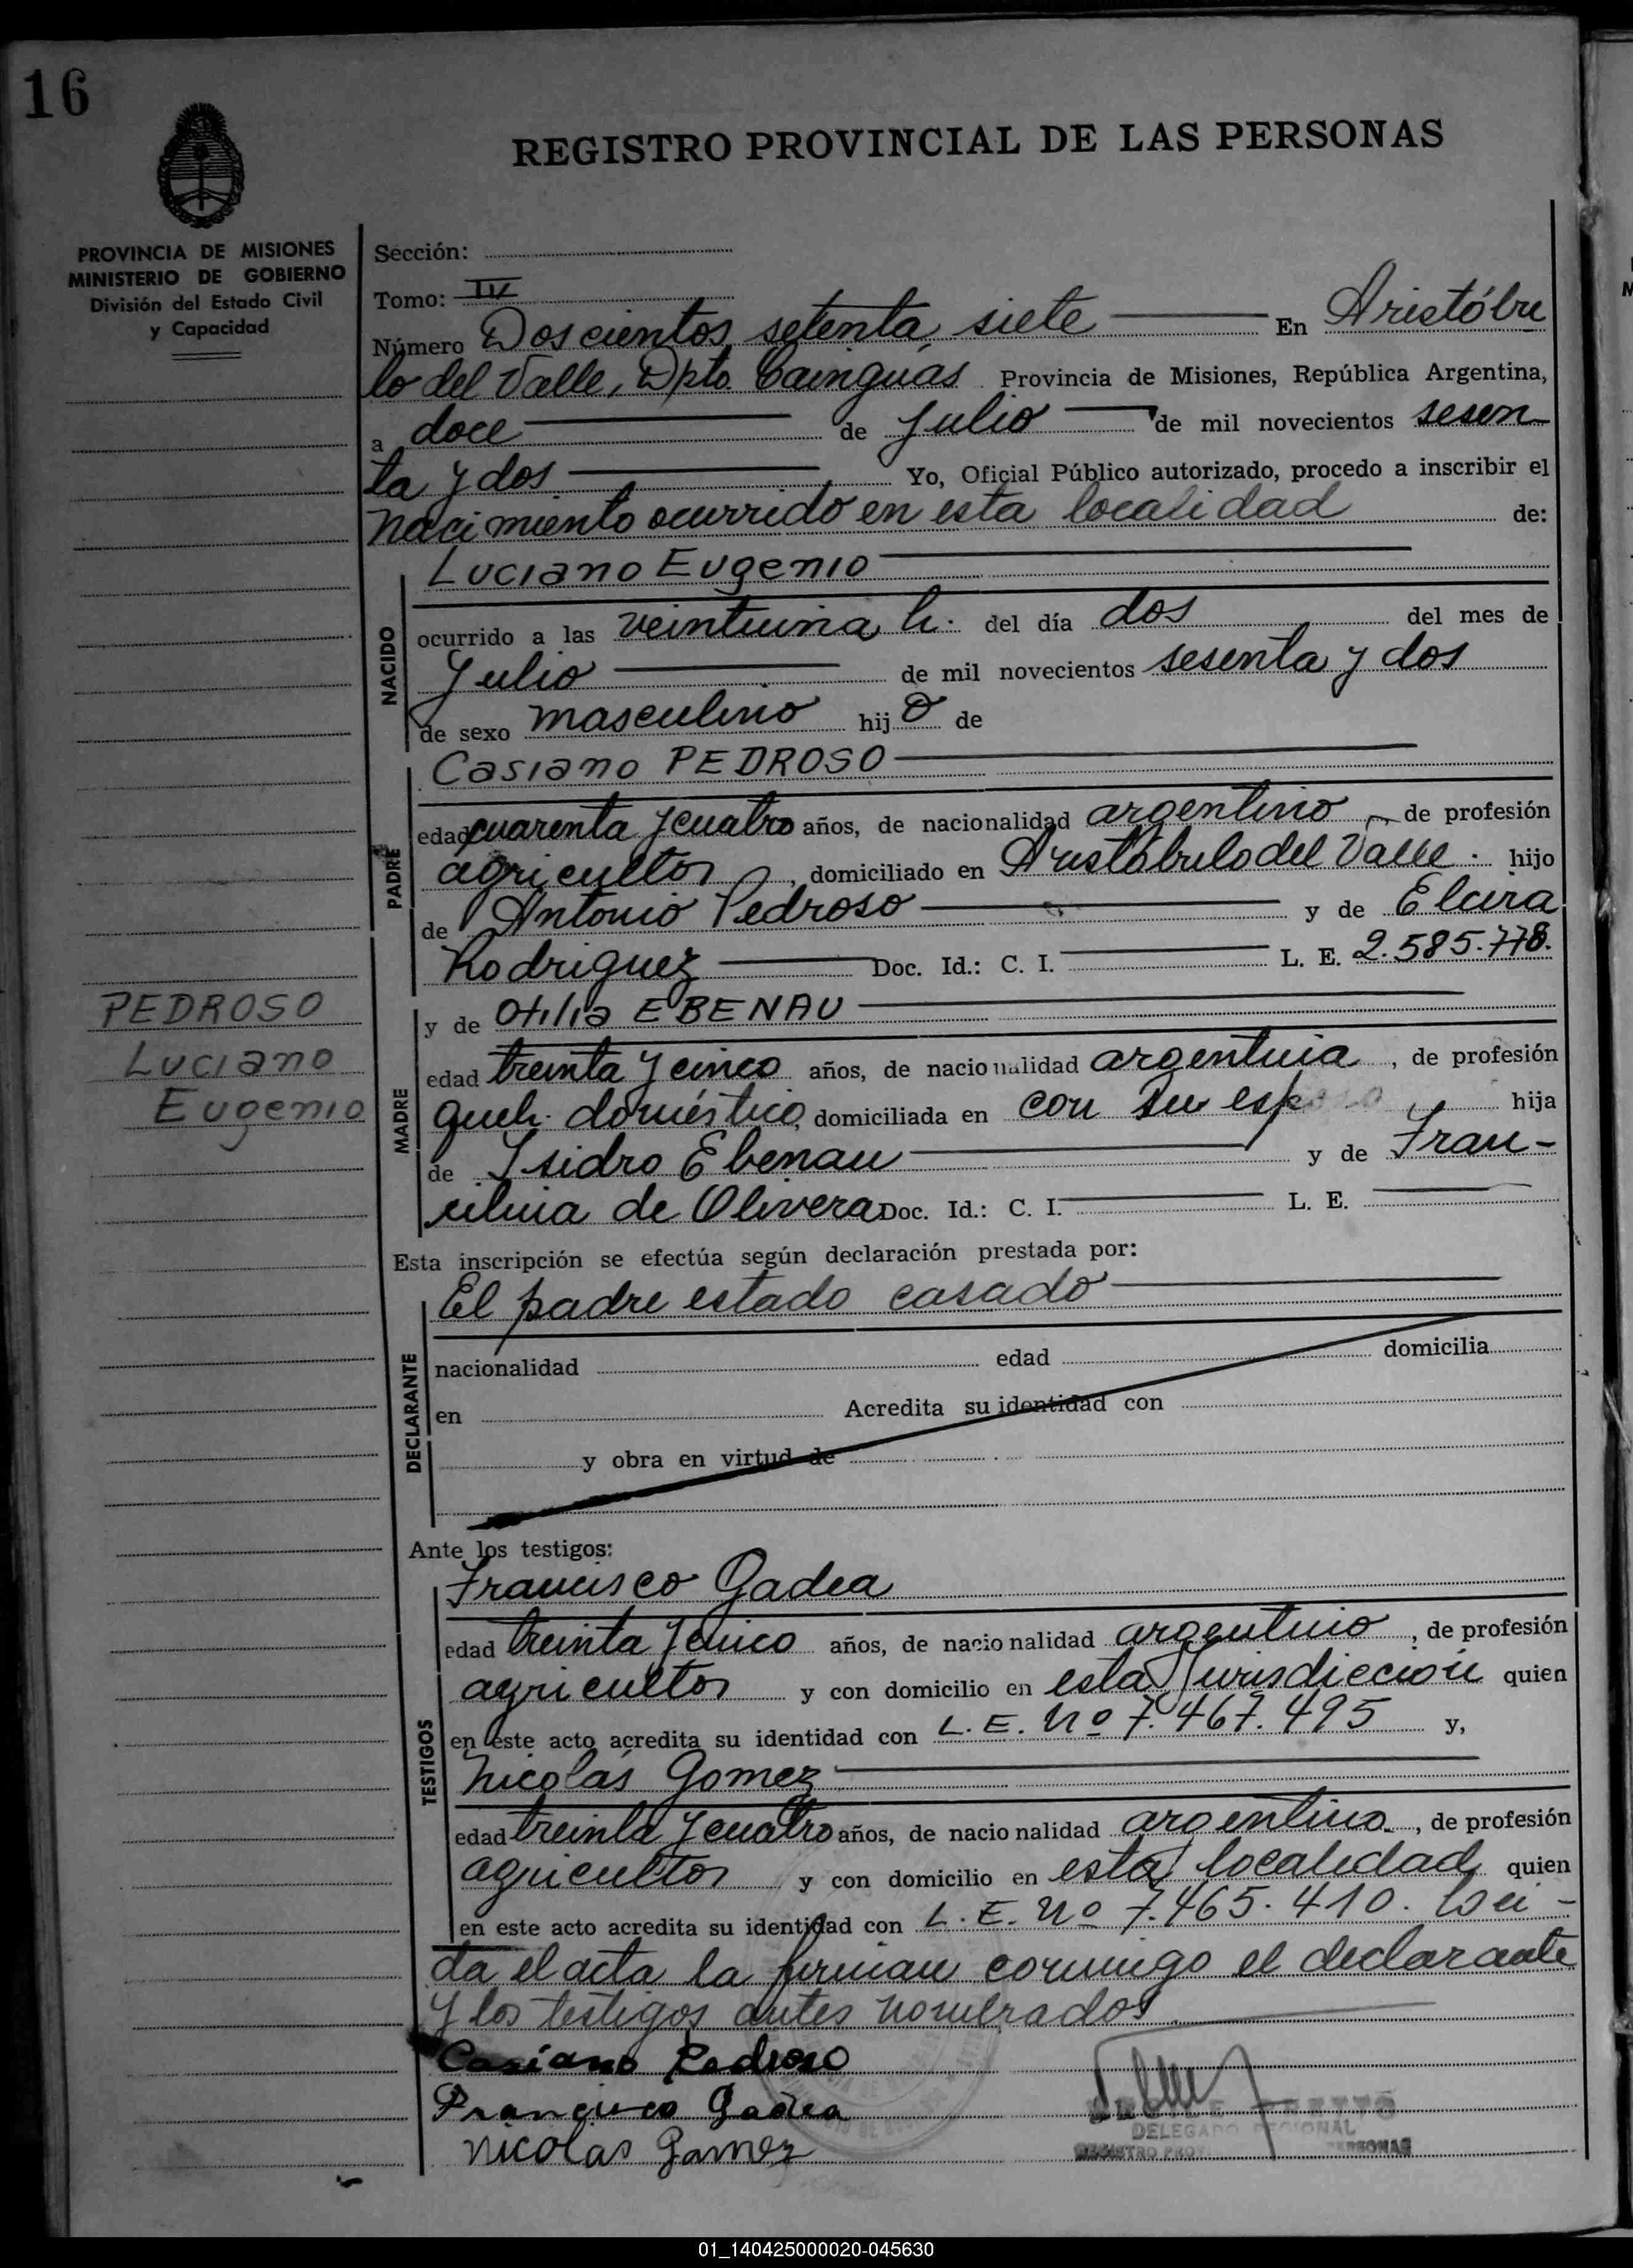 16
REGISTRO PROVINCIAL DE LAS PERSONAS
PROVINCIA DE MISIONES
MINISTERIO DE GOBIERNO
División del Estado Civil
y Capacidad
Sección:
Tomo: IV
Número Doscientos setenta, siete En Aristóbu
lo del Valle, Dpto. Cainguás. Provincia de Misiones, República Argentina,
a doce de Julio de mil novecientos sesen
ta y dos Yo, Oficial Público autorizado, procedo a inscribir el
nacimiento ocurrido en esta localidad de:
NACIDO
Luciano Eugenio
ocurrido a las veintiuna h. del día dos del mes de
Julio de mil novecientos sesenta y dos
de sexo masculino hijo de
PADRE
Casiano PEDROSO
edad cuarenta y cuatro años, de nacionalidad argentino, de profesión
agricultor, domiciliado en Aristóbulo del Valle. hijo
de Antonio Pedroso y de Elvira
Rodriguez Doc. Id.: C. I. L. E. 2.585.778.
PEDROSO
Luciano
Eugenio
MADRE
y de Otilia EBENAU
edad treinta y cinco años, de nacionalidad argentina, de profesión
queh. doméstico, domiciliada en con su esposo hija
de Isidro Ebenau y de Fran-
cilina de Olivera Doc. Id.: C. I. L. E.
Esta inscripción se efectúa según declaración prestada por:
DECLARANTE
El padre estado casado
nacionalidad edad domicilia
en Acredita su identidad con
y obra en virtud de
Ante los testigos:
TESTIGOS
Francisco Gadea
edad treinta y cinco años, de nacionalidad argentino, de profesión
agricultor y con domicilio en esta Jurisdiccion quien
en este acto acredita su identidad con L. E. Nº 7.467.495 y,
Nicolás Gomez
edad treinta y cuatro años, de nacionalidad argentino, de profesión
agricultor y con domicilio en esta localidad quien
en este acto acredita su identidad con L. E. Nº 7.465.410. Leí-
da el acta la firman conmigo el declarante
y los testigos antes nombrados
Casiano Pedroso
Francisco Gadea
Nicolas Gomez
DELEGADO REGIONAL
REGISTRO PROV. PERSONAS
01_140425000020-045630